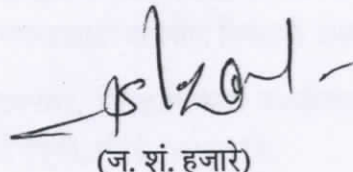 (ज. शं. हजारे)